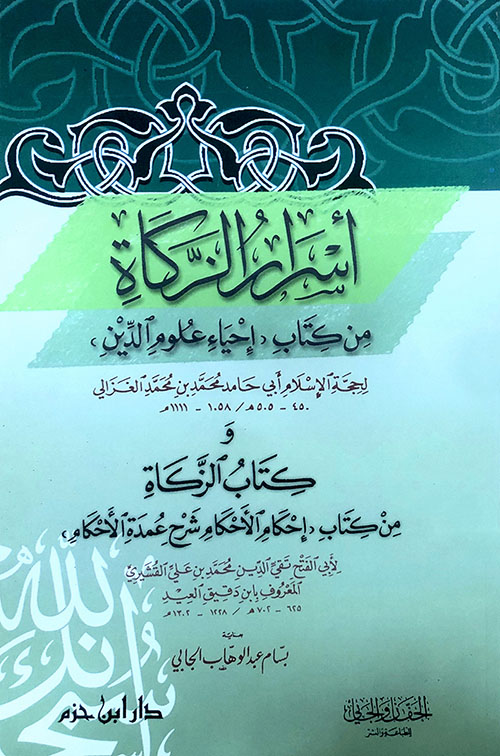 أَسْرَارُ الزَّكَاةِ
مِن كِتَابِ ﴿إِحْيَاءِ عُلُومِ الدِّيْنِ﴾
لحجة الإسلام أبي حامد محمد بن محمد الغزالي
٤٥٠ - ٥٠٥ هـ / ١٠٥٨ - ١١١١ م
و
كِتَابُ الزَّكَاةِ
مِنْ كِتَابِ ﴿إِحْكَامِ الأَحْكَامِ شَرْحِ عُمدَةِ الأَحْكَامِ﴾
لأبي الفتح تقي الدين محمد بن علي القشيري
المعروف بابن دقيق العيد
٦٢٥ - ٧٠٢ هـ / ١٢٢٨ - ١٣٠٢ م
بعناية
بسام عبد الوهاب الجابي
الجفان والجابي
للطباعة والنشر
دار ابن حزم